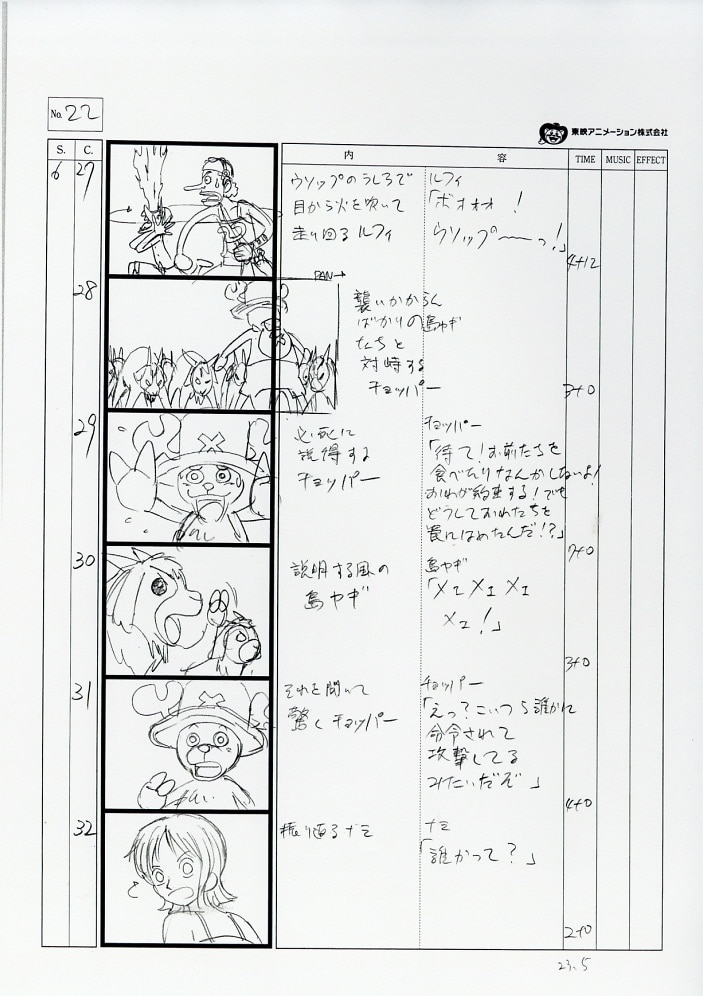 No. 22
東映アニメーション株式会社
S. C. 内 容 TIME MUSIC EFFECT
6 27
ウソップのうしろで
目から火を吹いて
走り回るルフィ
ルフィ
「ボォォォ!
ウソップ〜〜っ!」
4+12
28
PAN→
襲いかからん
ばかりの島ヤギ
たちと
対峙する
チョッパー
3+0
29
必死に
説得する
チョッパー
チョッパー
「待て!お前たちを
食べたりなんかしないよ!
おれが約束する!でも
どうしておれたちを
罠にはめたんだ!?」
7+0
30
説明する風の
島ヤギ
島ヤギ
「メエメエメエ
メエ!」
3+0
31
それを聞いて
驚くチョッパー
チョッパー
「えっ?こいつら誰かに
命令されて
攻撃してる
みたいだぞ」
4+0
32
振り返るナミ
ナミ
「誰かって?」
2+0
23.5